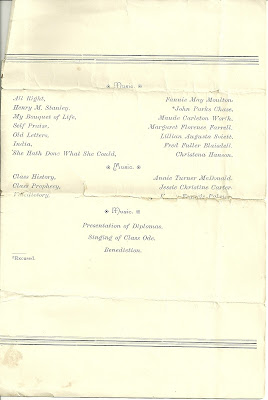 Music.
All Right, Fannie May Moulton.
Henry M. Stanley, *John Parks Chase.
My Bouquet of Life, Maude Carleton Worth.
Self Praise, Margaret Florence Farrell.
Old Letters, Lillian Augusta Swett.
India, Fred Fuller Blaisdell.
She Hath Done What She Could, Christena Hanson.
Music.
Class History, Annie Turner McDonald.
Class Prophecy, Jessie Christine Carter.
Valedictory
Music.
Presentation of Diplomas.
Singing of Class Ode.
Benediction.
*Excused.